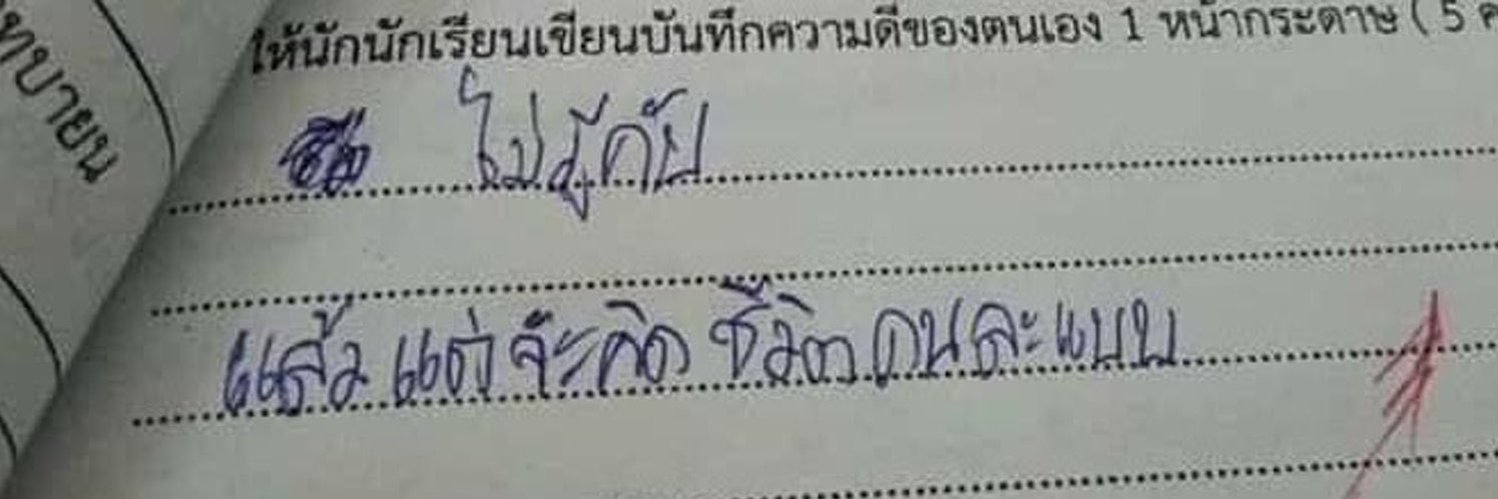 ทบายน
ให้นักนักเรียนเขียนบันทึกความดีของตนเอง 1 หน้ากระดาษ ( 5 ค
ไม่รู้คับ
แล้ว แต่จะคิด ชีวิต คนละแบบ